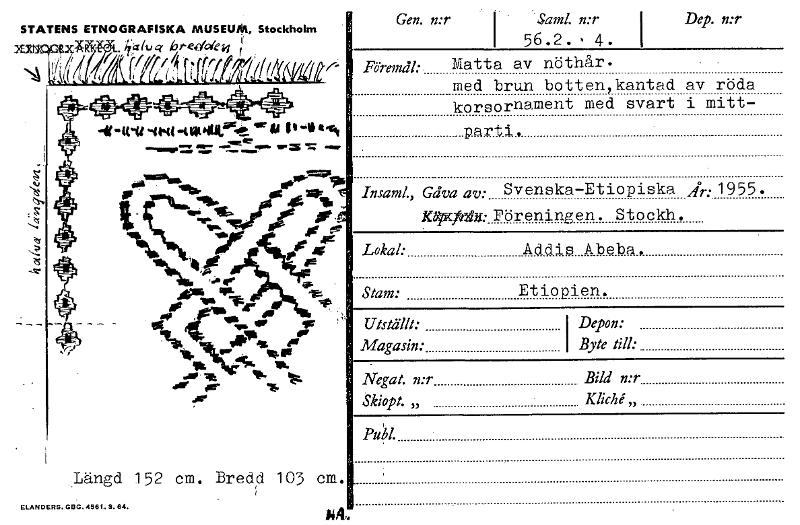 STATENS ETNOGRAFISKA MUSEUM, Stockholm
ARKEOL. halva bredden
halva längden.
Längd 152 cm. Bredd 103 cm.
ELANDERS. GBG. 4561. 3. 64.
HA.
Gen. n:r
Saml. n:r
Dep. n:r
56.2. 4.
Föremål: Matta av nöthår.
med brun botten,kantad av röda
korsornament med svart i mitt-
parti.
Insaml., Gåva av: Svenska-Etiopiska År: 1955.
Köpt från: Föreningen. Stockh.
Lokal: Addis Abeba.
Stam: Etiopien.
Utställt: Depon:
Magasin: Byte till:
Negat. n:r Bild n:r
Skiopt. „ Kliché „
Publ.